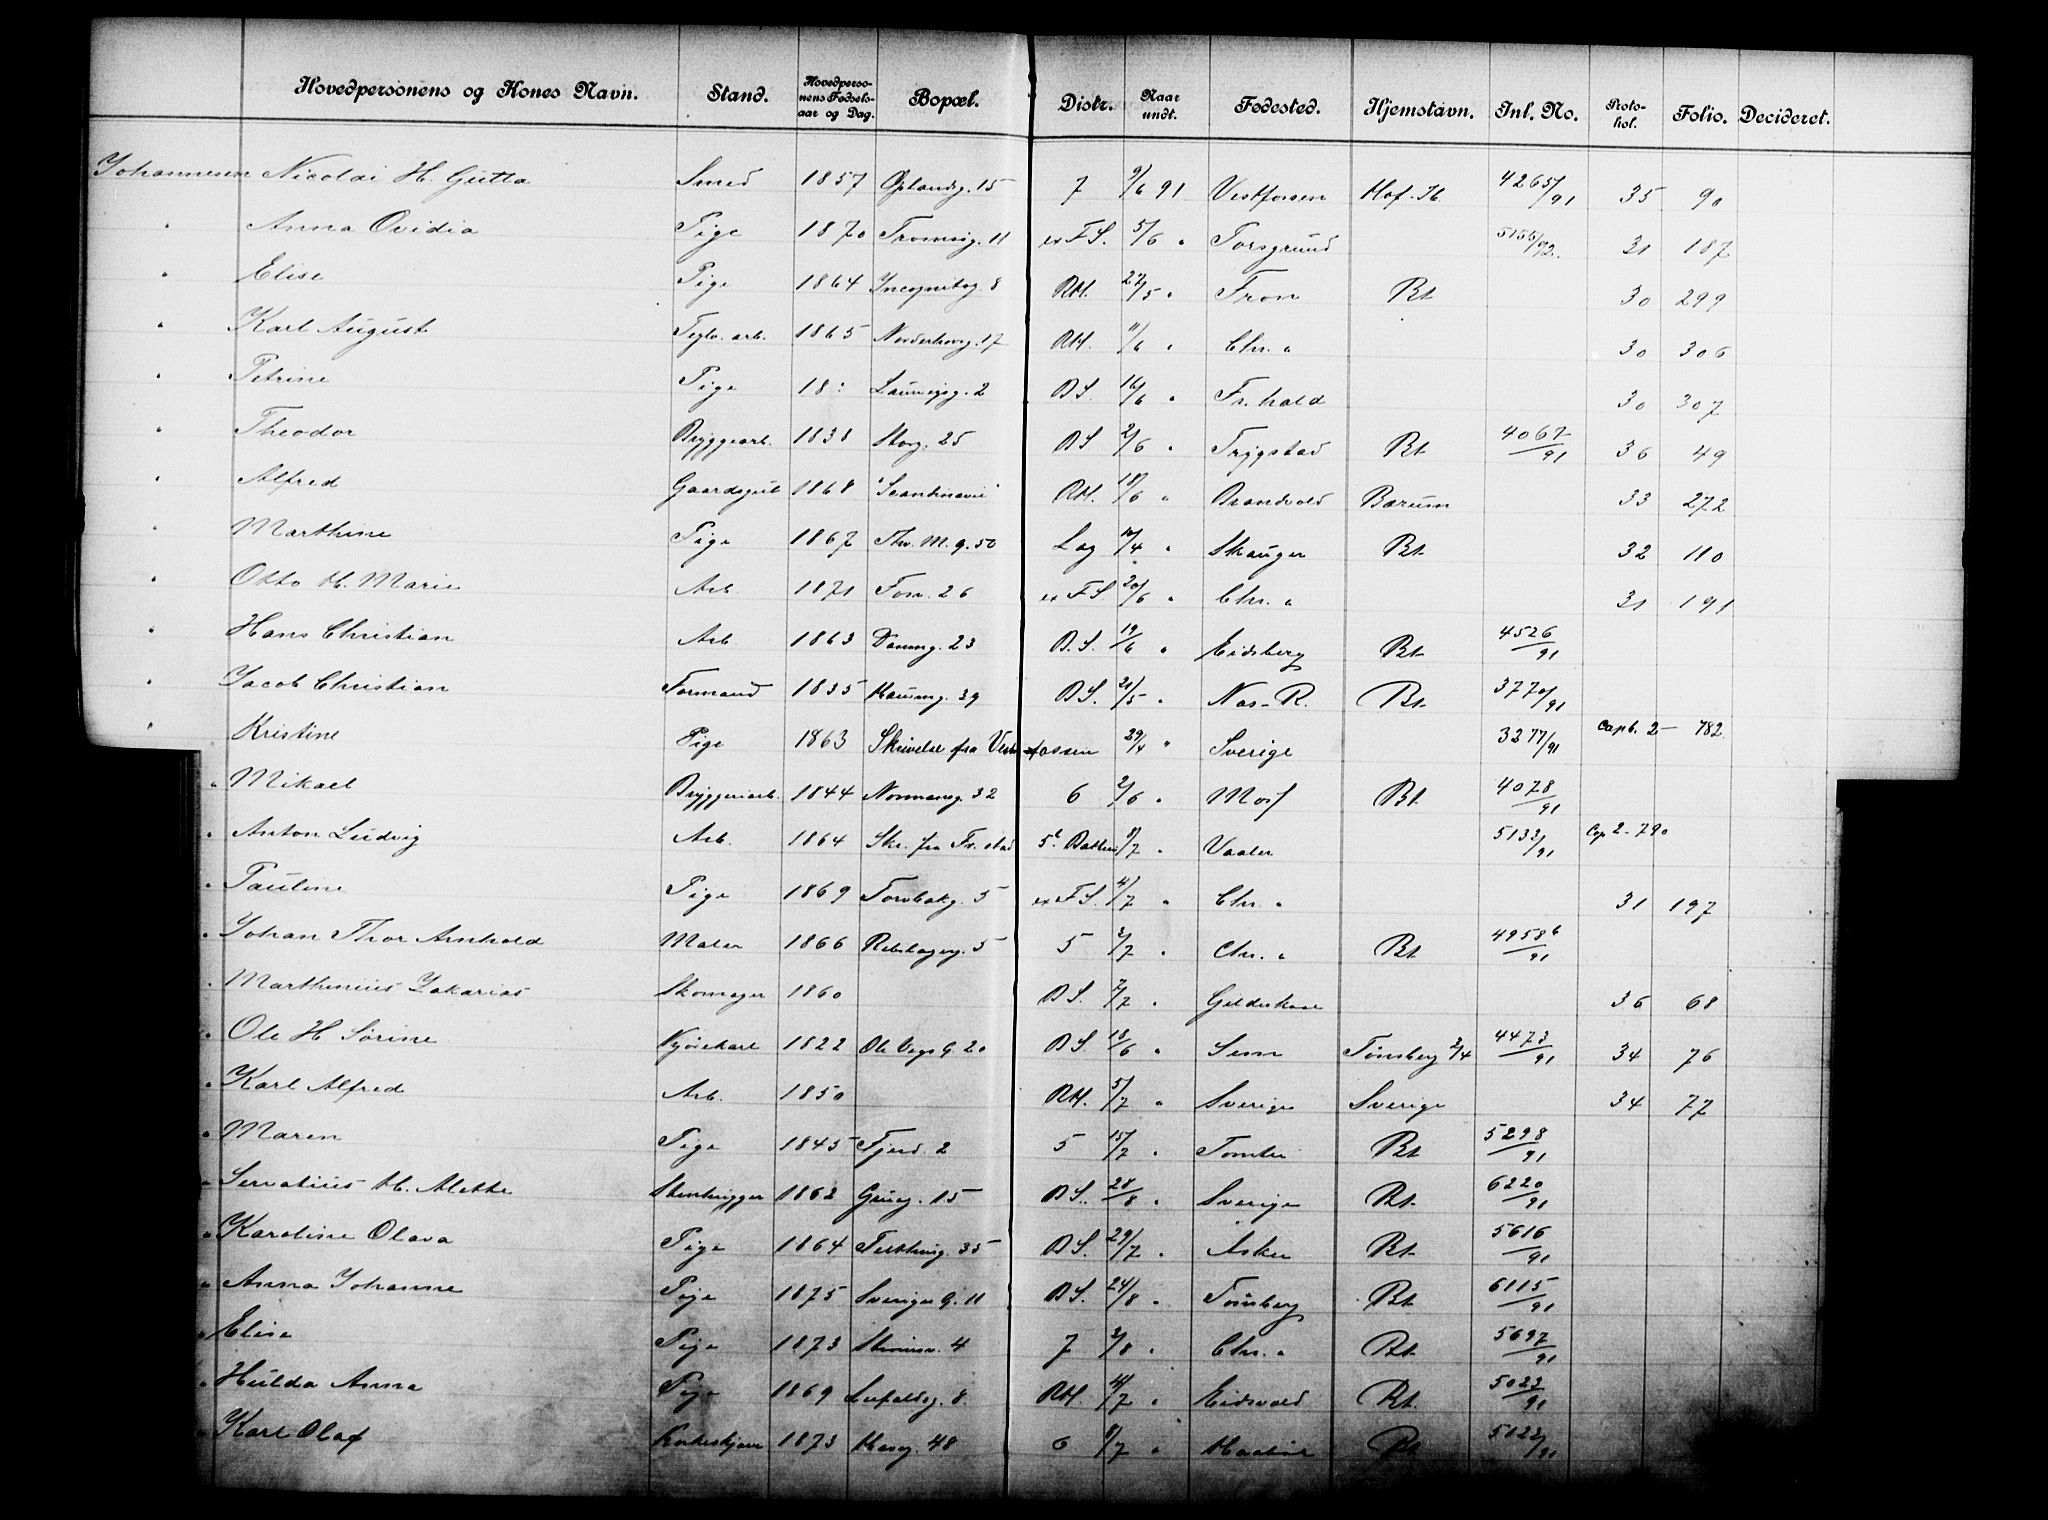 Hovedpersonens og Kones Navn. Stand. Hovedpersonens Fødselsaar og Dag. Bopæl. Distr. Naar undt. Fødested. Hjemstavn. Inl. No. Protokol. Folio. Decideret.
Johannesen Nicolai H. Gutta Smed 1857 Oplandsg. 15 7 9/6 91 Vestfossen Hof. Jb. 4265/91 35 90
" Anna Ovidia Pige 1870 Tromsøg. 11 ex F.S. 5/6 " Torsgrund 5155/92 31 187
" Elise Pige 1864 Incognitog. 8 RH. 27/5 " Fron Bt 30 299
" Karl August Teglv. arb. 1865 Norderhovg. 17 RH. 11/6 " Chr. a 30 306
" Petrine Pige 18 : Laurvigsg. 2 BS. 16/6 " Fr. hald 30 307
" Theodor Bryggearb. 1838 Storg. 25 BS 2/6 " Trygstad Bt 4067/91 36 49
" Alfred Gaardsgut 1868 "Scandinavie" RH. 18/6 " Brandvold Bærum 33 272
" Marthine Pige 1867 Thv. M. g. 50 Lag 10/4 " Skauger Bt. 32 110
" Otto H. Marie Arb 1871 Fossv. 26 ex F.S. 20/6 " Chr. a 31 191
" Hans Christian Arb. 1863 Damng. 23 B.S. 19/6 " Eidsberg Bt. 4526/91
" Jacob Christian Formand 1835 Hausmg. 39 BS. 21/5 " Næs-R. Bt. 3770/91
" Kristine Pige 1863 Skrivelse fra Vestfossen 29/4 " Sverige 3277/91 Capt. 2- 782
" Mikael Bryggeriarb. 1844 Normansg. 32 6 2/6 " Mosj Bt. 4078/91
" Anton Ludvig Arb. 1864 Skr. fra Fr. stad 5t Batteri 9/7 " Vaaler 5133/91 Cop 2-790
" Pauline Pige 1869 Torvbakg. 5 ex F.S. 4/7 " Chr. a 31 197
" Johan Thor Arnhold Maler 1866 Rebslagerg. 5 5 2/7 " Chr. a Bt. 49586/91
" Marthinius Zakarias Skomager 1860 BS. 7/7 " Gildeskaal 36 68
" Ole H Sørine Kjørekarl 1822 Ole Vigs G. 20 BS. 18/6 " Sem Tønsberg 2/4 4473/91 34 76
" Karl Alfred Arb. 1850 RH. 5/7 " Sverige Sverige 34 77
" Maren Pige 1845 Fjerd. 2 5 15/7 " Tomter Bt. 5298/91
" Servatius H. Alette Stenhugger 1862 Grueg. 15 BS. 28/8 " Sverige Bt. 6220/91
" Karoline Olava Pige 1864 Tefthusg. 35 BS. 29/7 " Asker Bt. 5616/91
" Anna Johanne Pige 1875 Sveriges G. 11 BS. 24/8 " Tønsberg Bt. 6115/91
" Elise Pige 1873 Steinsv. 4 7 2/8 " Chr. a Bt. 5697/91
" Hulda Anna Pige 1869 Leufaldsg. 8. RH. 4/7 " Eidsvold Bt. 5023/91
" Karl Olaf 1873 Havng. 48 6 9/7 " Bt 5123/91